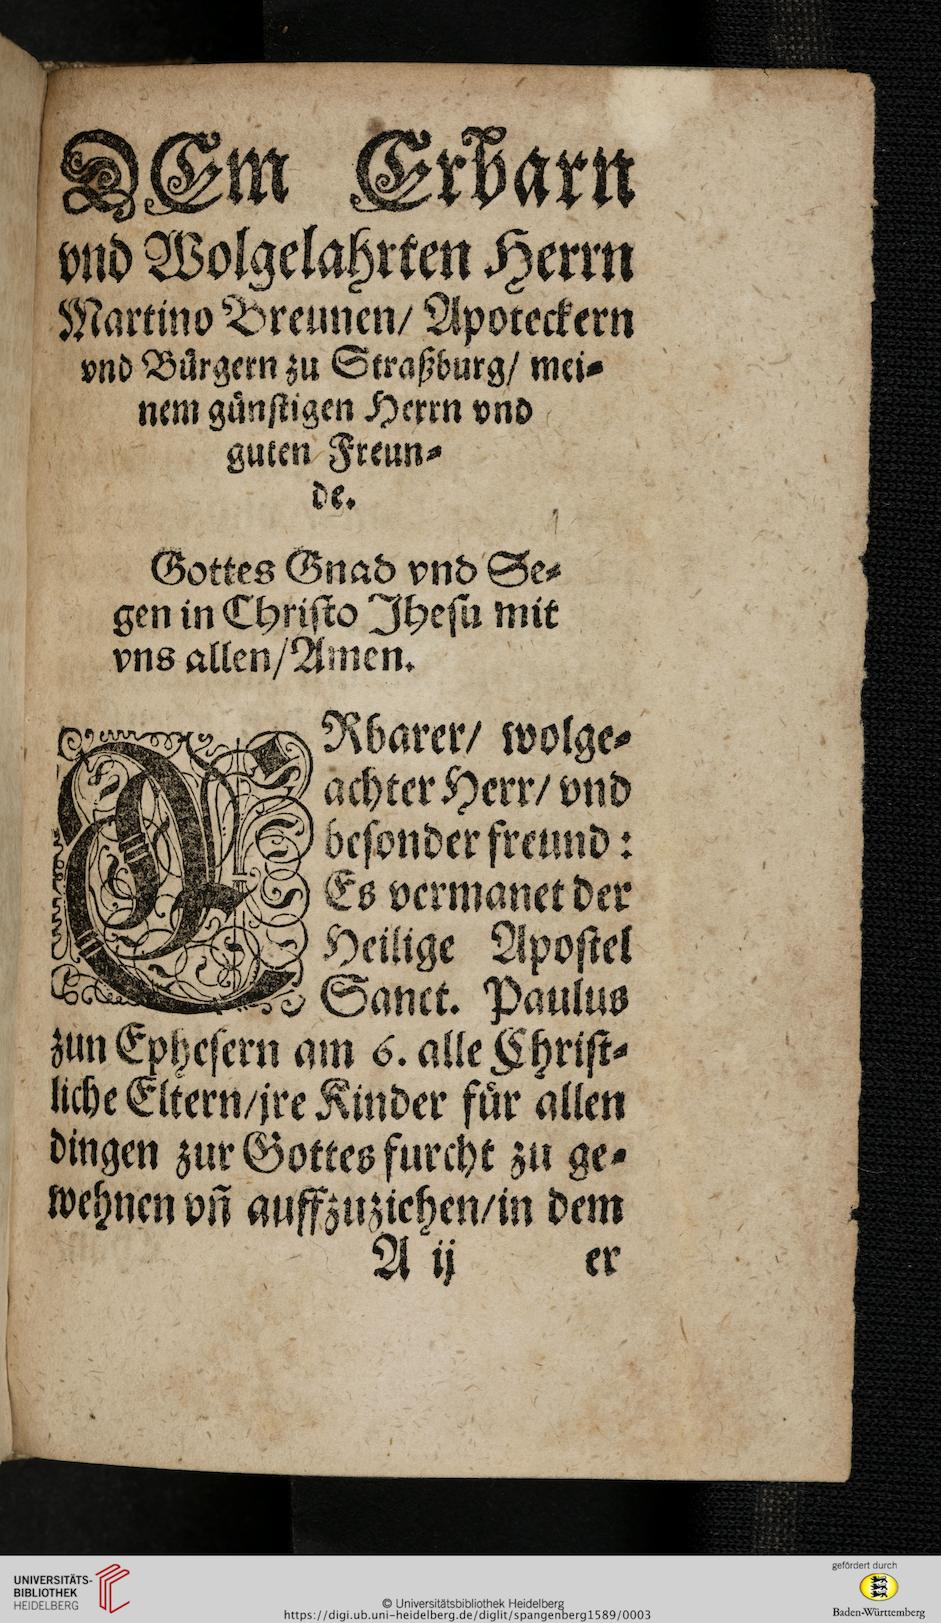 DEm Erbarn
vnd Wolgelahrten Herrn
Martino Breunen/ Apoteckern
vnd Bürgern zu Straßburg/ mei⸗
nem günſtigen Herrn vnd
guten Freun⸗
de.
Gottes Gnad vnd Se⸗
gen in Chriſto Jheſu mit
vns allen/ Amen.
ERbarer/ wolge⸗
achter Herr/ vnd
beſonder freund:
Es vermanet der
Heilige Apoſtel
Sanct. Paulus
zun Epheſern am 6. alle Chriſt⸗
liche Eltern/ jre Kinder für allen
dingen zur Gottes furcht zu ge⸗
wehnen vñ auffzuziehen/ in dem
A ij er
UNIVERSITÄTS-
BIBLIOTHEK
HEIDELBERG
© Universitätsbibliothek Heidelberg
https://digi.ub.uni-heidelberg.de/diglit/spangenberg1589/0003
gefördert durch
Baden-Württemberg